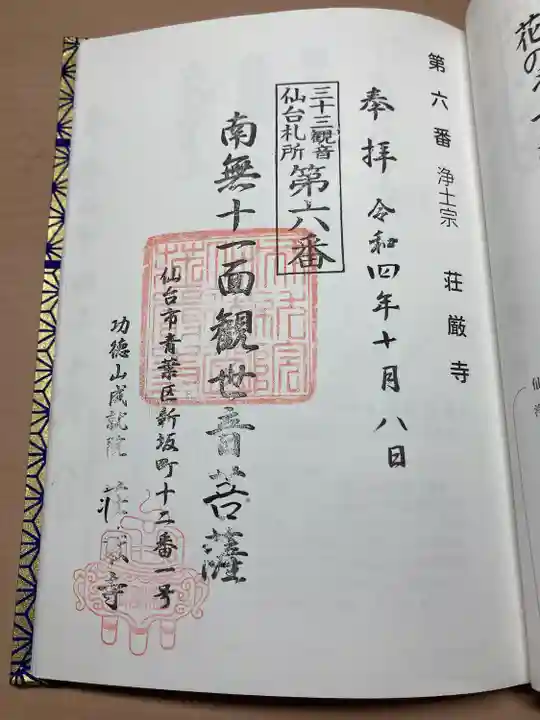 第六番 浄土宗 荘厳寺
奉拝 令和四年十月八日
三十三観音
仙台札所
第六番
南無十一面観世音菩薩
仙台市青葉区新坂町十二番一号
功徳山成就院 荘厳寺
花の
仙